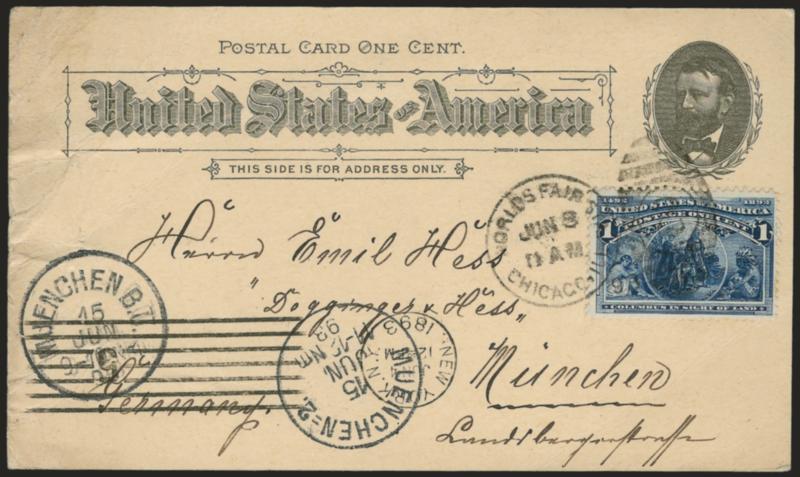 POSTAL CARD ONE CENT.
United States of America
THIS SIDE IS FOR ADDRESS ONLY.
WORLDS FAIR
JUN 8
11 AM
CHICAGO
1492 1892
UNITED STATES OF AMERICA
POSTAGE ONE CENT
1 1
COLUMBUS IN SIGHT OF LAND
Herrn Emil Hess
"Dogginger & Hess"
MUENCHEN B.
15
JUN
NEW
N.Y.
1893
12
MUENCHEN 2.
15
JUN
93
München
Germany.
Landsbergerstrasse